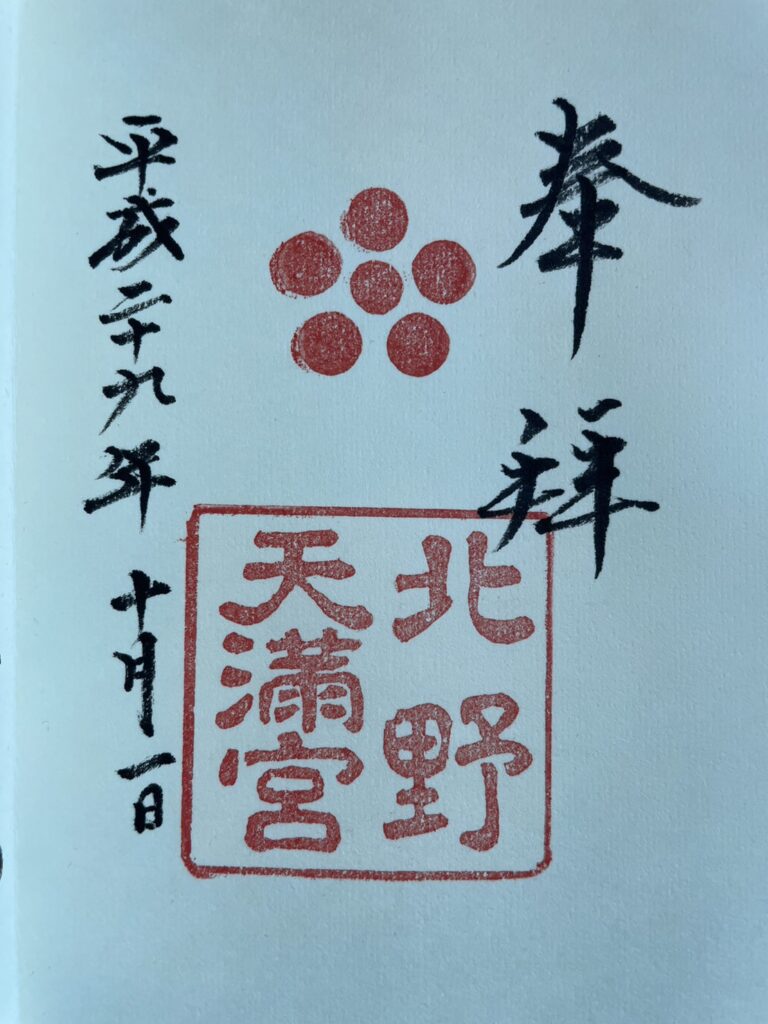 奉拝
北野
天満宮
平成二十九年十月一日